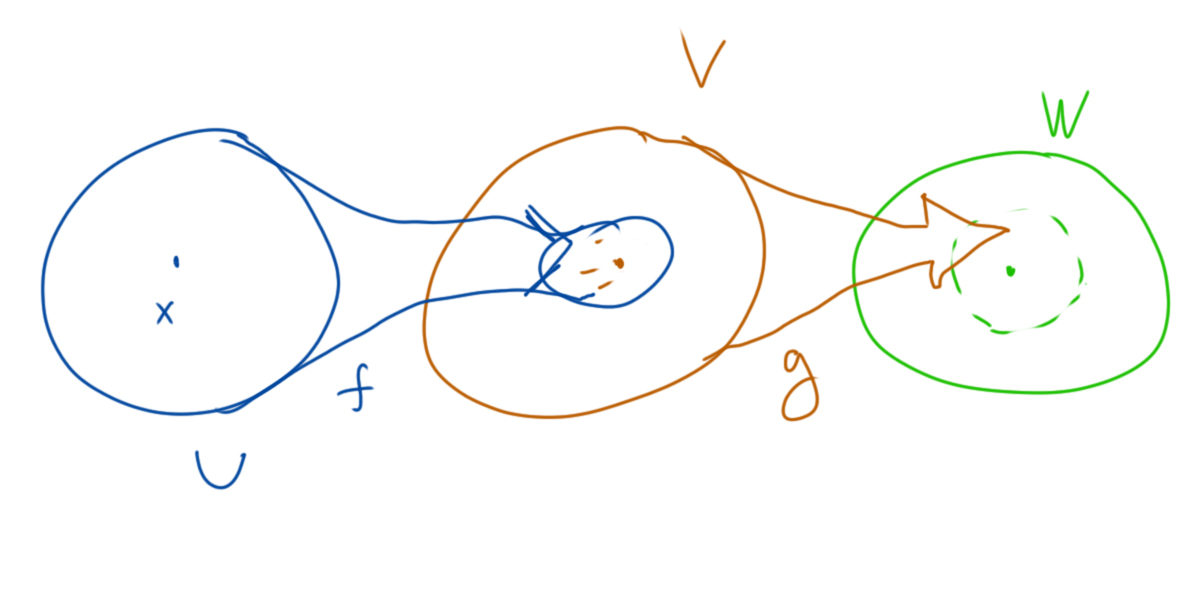 V
W
x
f
g
U